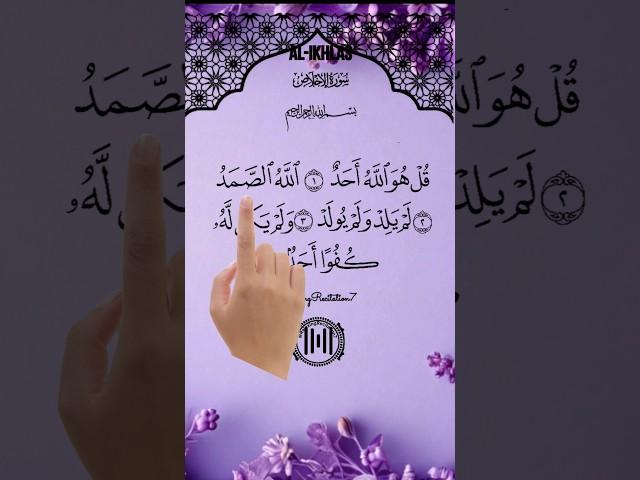 AL-IKHLAS
سُورَةُ الإِخْلَاصِ
بِسْمِ اللهِ الرَّحْمٰنِ الرَّحِيمِ
قُلْ هُوَ ٱللَّهُ أَحَدٌ ١ ٱللَّهُ ٱلصَّمَدُ
٢ لَمْ يَلِدْ وَلَمْ يُولَدْ ٣ وَلَمْ يَكُن لَّهُۥ
كُفُوًا أَحَدٌ